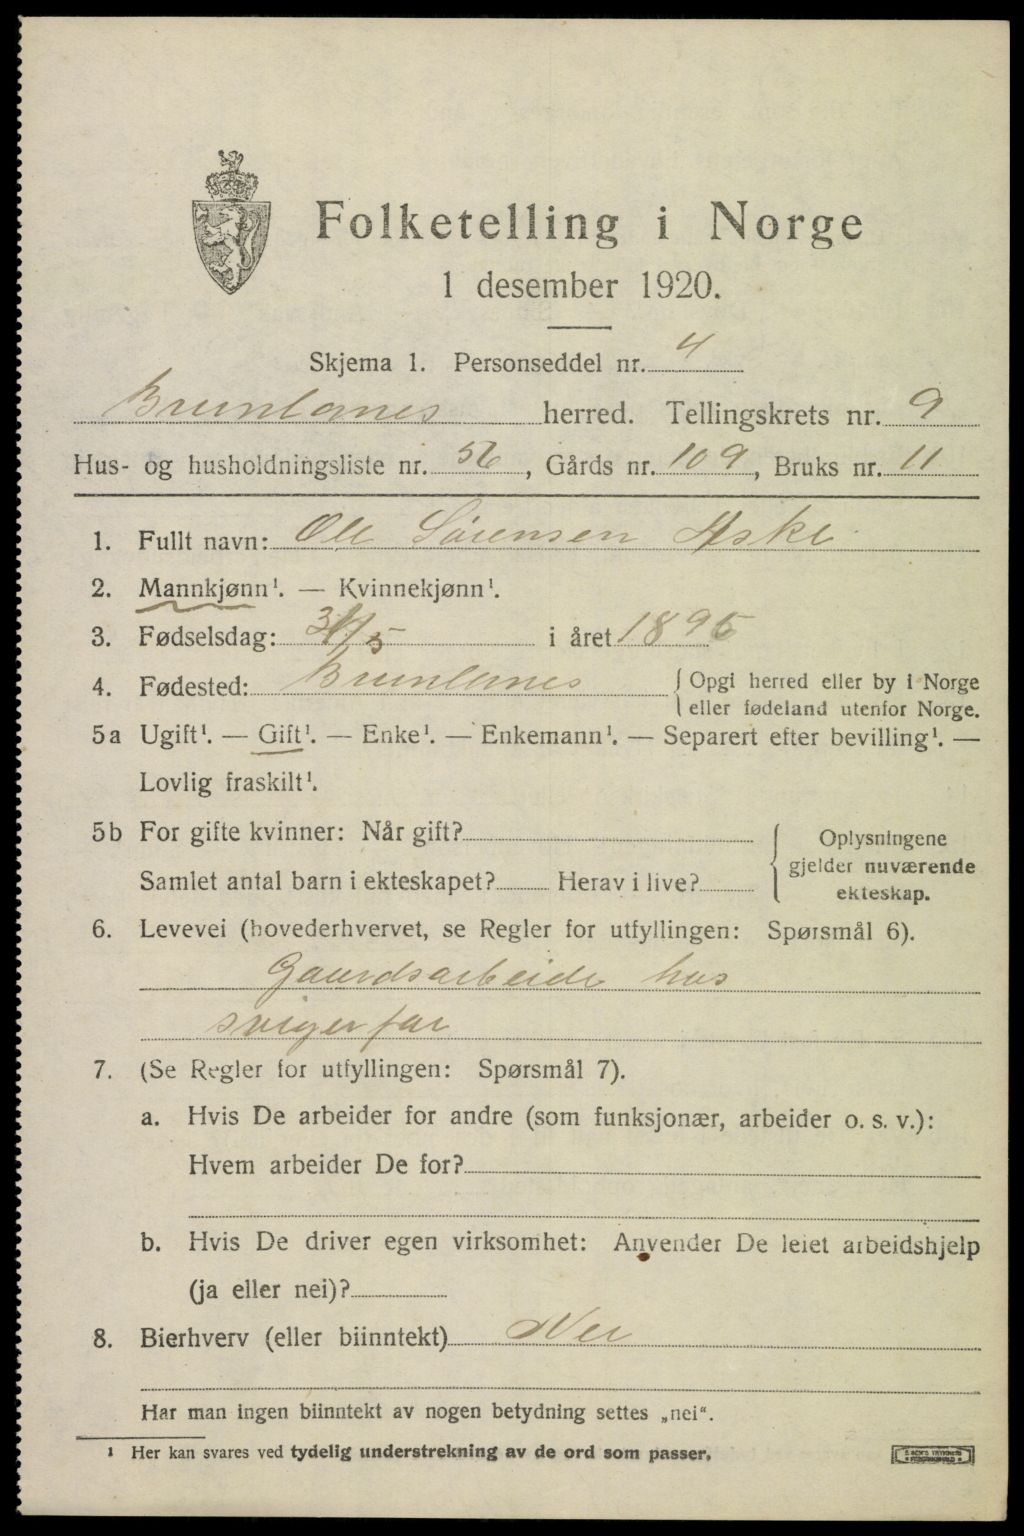 Folketelling i Norge
1 desember 1920.
Skjema 1. Personseddel nr. 4
Brunlanes herred. Tellingskrets nr. 9
Hus- og husholdningsliste nr. 56, Gårds nr. 109, Bruks nr. 11
1. Fullt navn: Ole Sørensen Aske
2. Mannkjønn¹. — Kvinnekjønn¹.
3. Fødselsdag: 31/5 i året 1895
4. Fødested: Brunlanes { Opgi herred eller by i Norge
eller fødeland utenfor Norge.
5a Ugift¹. — Gift¹. — Enke¹. — Enkemann¹. — Separert efter bevilling¹. —
Lovlig fraskilt¹.
5b For gifte kvinner: Når gift?
Samlet antal barn i ekteskapet? Herav i live?
Oplysningene
gjelder nuværende
ekteskap.
6. Levevei (hovederhvervet, se Regler for utfyllingen: Spørsmål 6).
Gaardsarbeide hos
svigerfar
7. (Se Regler for utfyllingen: Spørsmål 7).
a. Hvis De arbeider for andre (som funksjonær, arbeider o. s. v.):
Hvem arbeider De for?
b. Hvis De driver egen virksomhet: Anvender De leiet arbeidshjelp
(ja eller nei)?
8. Bierhverv (eller biinntekt) Nei
Har man ingen biinntekt av nogen betydning settes „nei“.
¹ Her kan svares ved tydelig understrekning av de ord som passer.